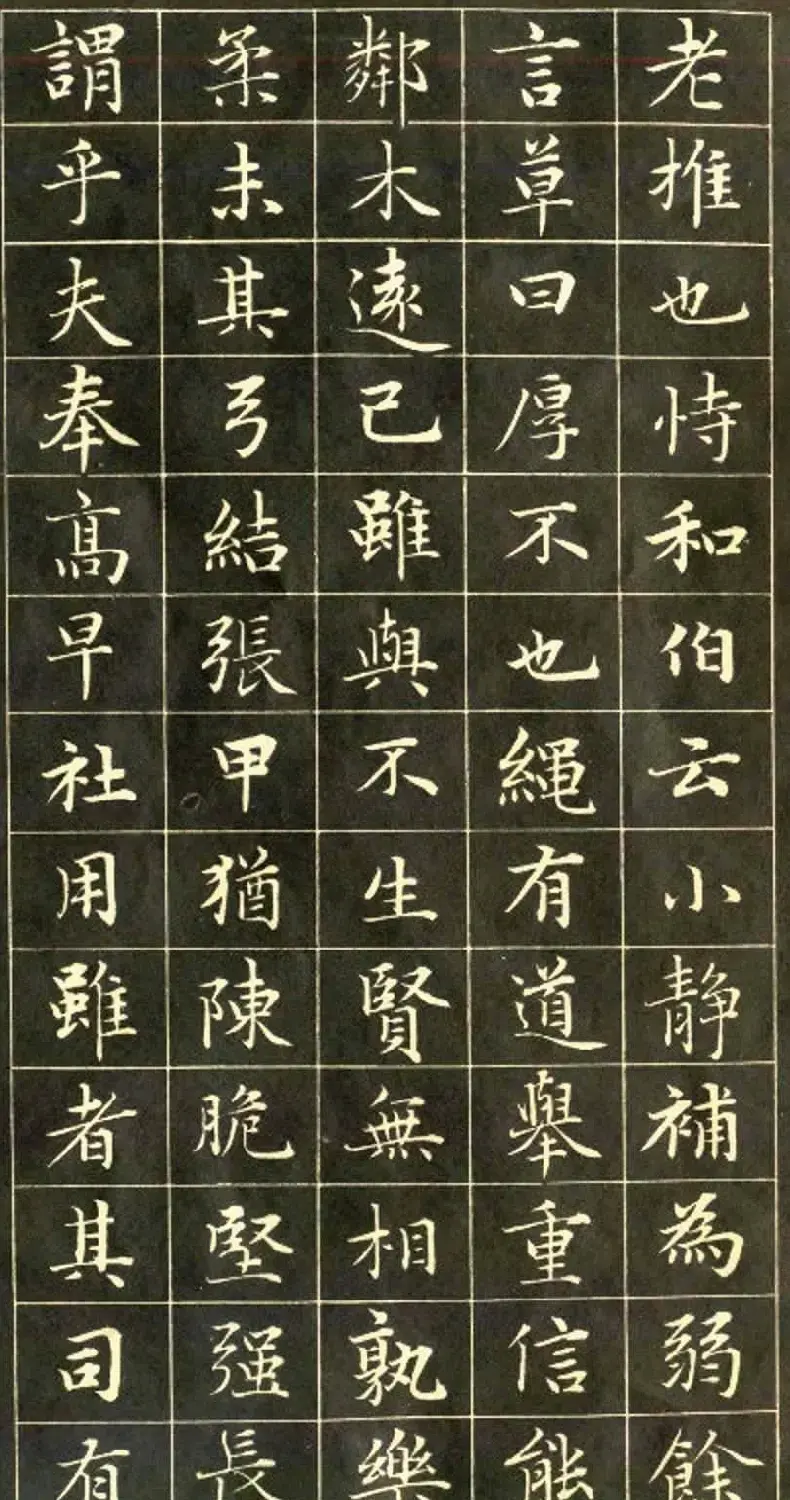 老推也恃和伯云小靜補為弱餘
言草曰厚不也繩有道舉重信能
鄰木遠已雖與不生賢無相孰樂
柔未其弓結張甲猶陳脆堅强長
謂乎夫奉高早社用雖者其司有